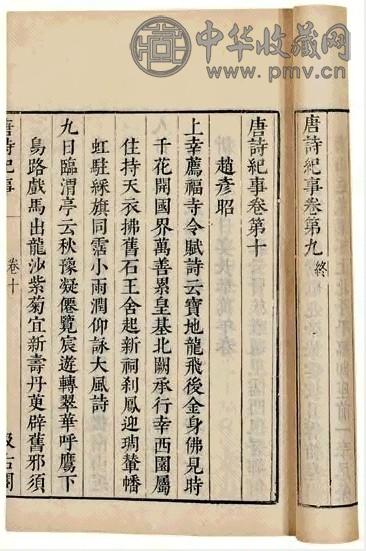 中华收藏网
www.pmv.cn
唐詩紀事卷第九 終
唐詩紀事卷第十
趙彦昭
上幸薦福寺令賦詩云寶地龍飛後金身佛見時
千花開國界萬善累皇基北闕承行幸西園屬
住持天衣拂舊石王舍起新祠刹鳳迎琱輦幡
虹駐綵旗同霑小雨潤仰詠大風詩
九日臨渭亭云秋豫凝僊覽宸遊轉翠華呼鷹下
鳥路戲馬出龍沙紫菊宜新壽丹萸辟舊邪須
唐詩紀事 卷十 汲古閣